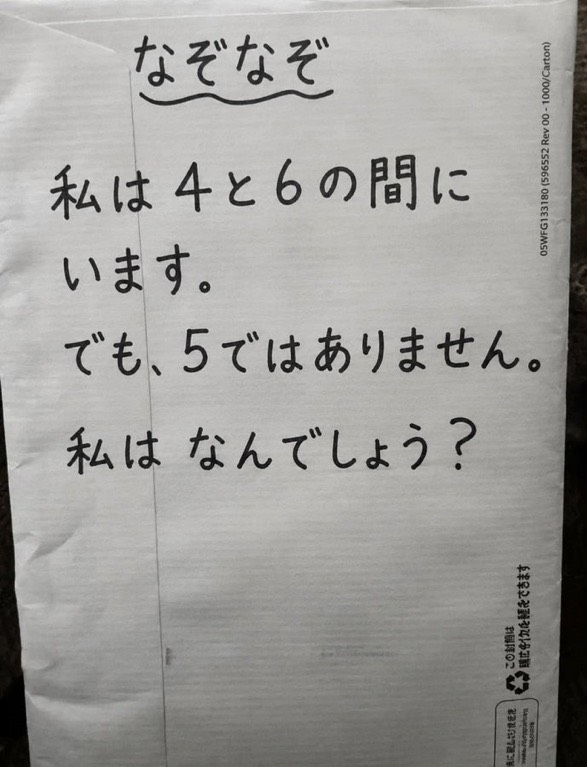 なぞなぞ
私は4と6の間に
います。
でも、5ではありません。
私は なんでしょう?
05WFG133180 (596552 Rev 00 - 1000/Carton)
この封筒は